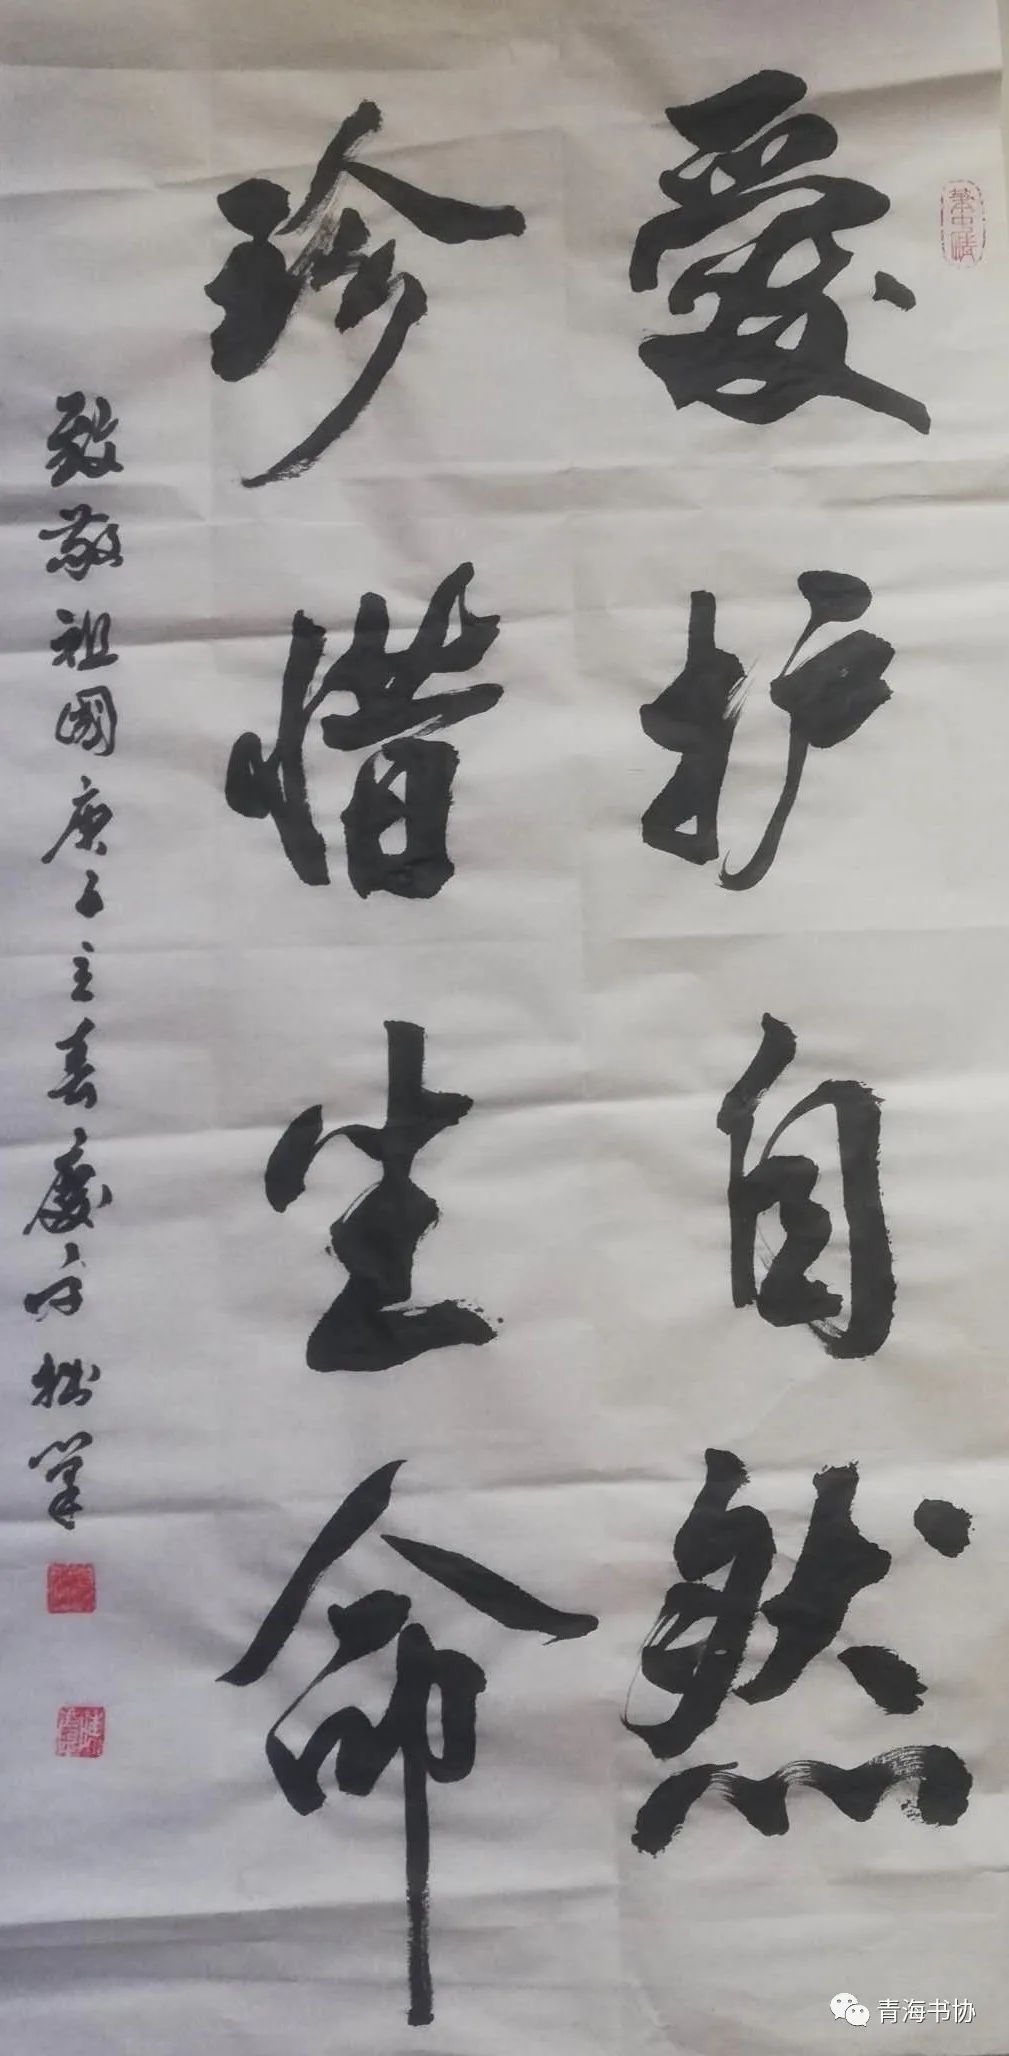 愛护自然
珍惜生命
致敬祖國庚子立春慶方拙筆
青海书协